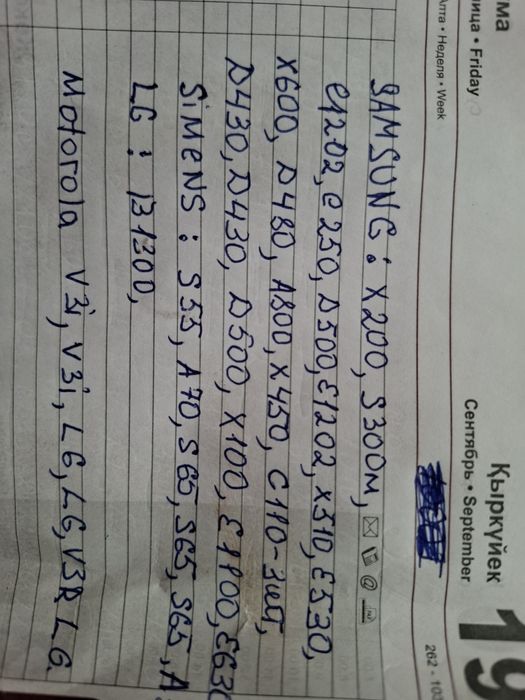 ма
ица • Friday
Апта • Неделя • Week
Қыркүйек
Сентябрь • September
19
262 - 103
SAMSUNG : X200, S300M,
e1202, C250, D500, E1202, X510, E530,
X600, D480, A800, X450, C110-зип,
D430, D430, D500, X100, E1100, E630
SiMENS : S55, A70, S65, S65, S65, A
LG : B1300,
Motorola V3i, V3i, LG, LG, V3R LG